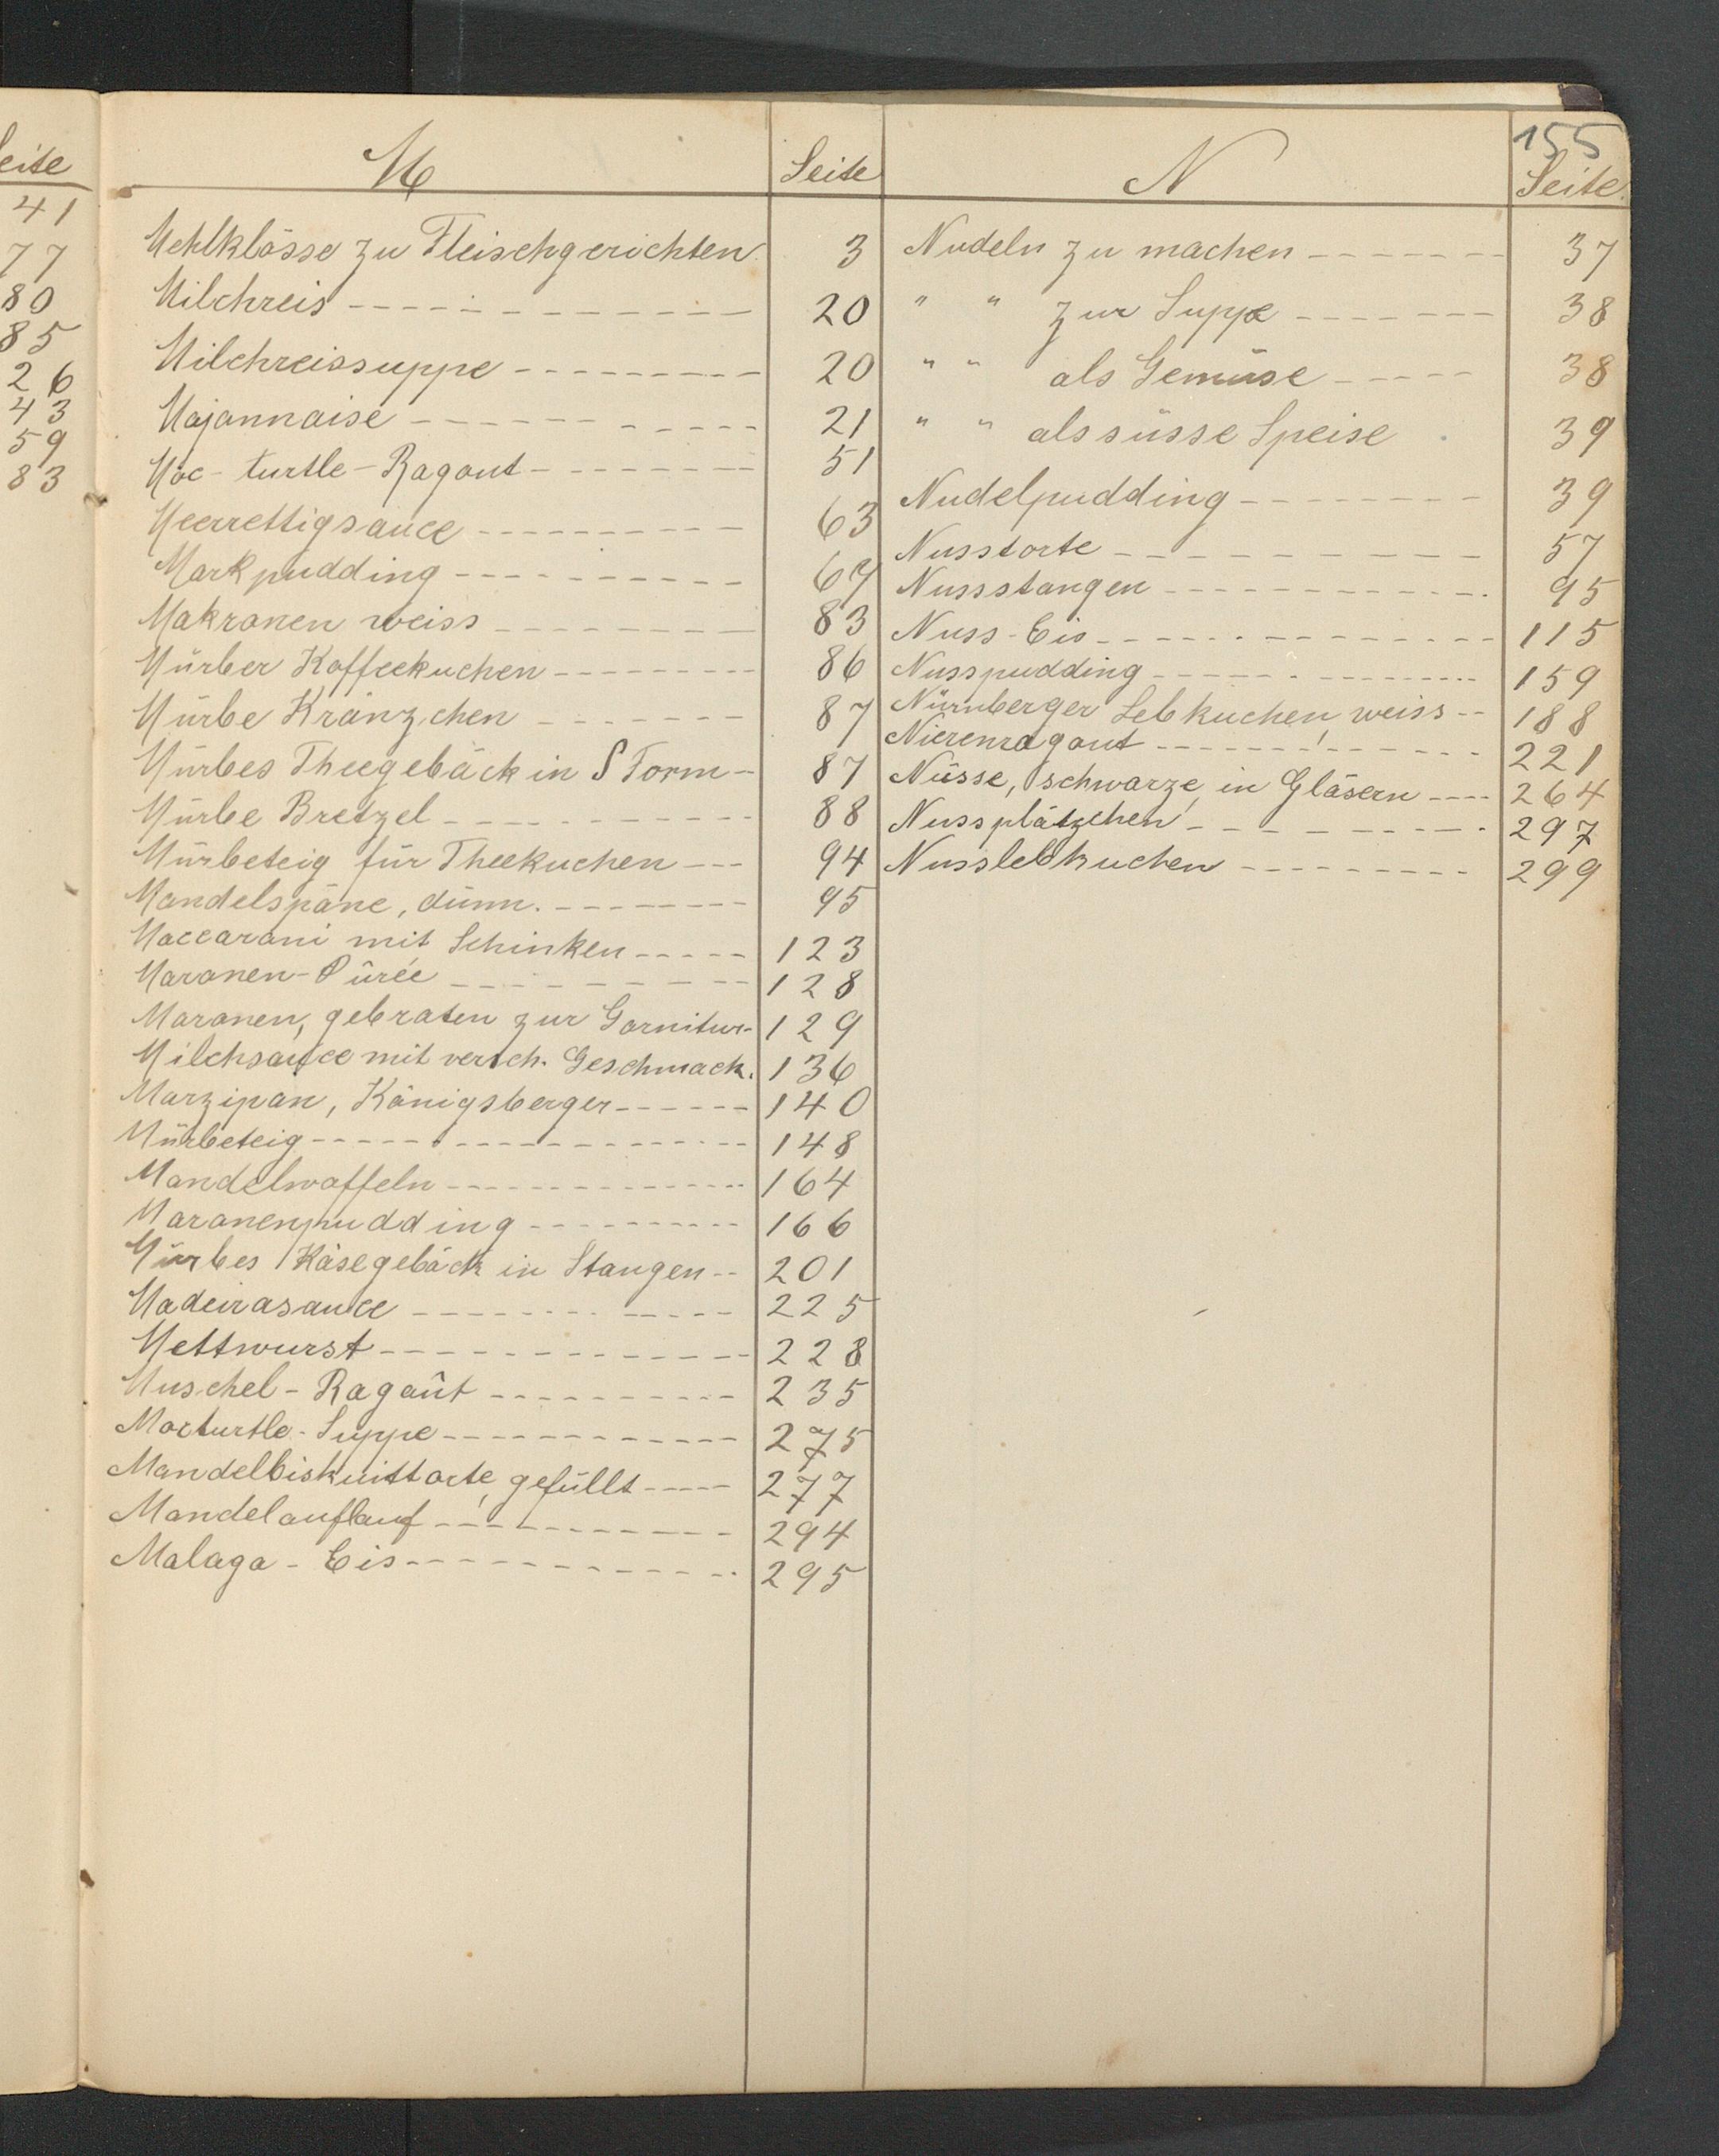 eite
41
77
80
85
26
43
59
83
155
M Seite
Mehlklösse zu Fleischgerichten 3
Milchreis 20
Milchreissuppe 20
Majonnaise 21
Moc-turtle-Ragout 51
Meerrettigsauce 63
Markpudding 67
Makronen weiss 83
Mürber Kaffeekuchen 86
Mürbe Kränzchen 87
Mürbes Theegebäck in S Form 87
Mürbe Bretzel 88
Mürbeteig für Theekuchen 94
Mandelspäne, dünn. 95
Maccaroni mit Schinken 123
Maronen-Pûrée 128
Maronen, gebraten zur Garnitur 129
Milchsauce mit versch. Geschmack. 136
Marzipan, Königsberger 140
Mürbeteig 148
Mandelwaffeln 164
Maronenpudding 166
Mürbes Käsegebäck in Stangen 201
Madeirasauce 225
Mettwurst 228
Muschel-Ragoût 235
Mocturtle-Suppe 275
Mandelbiskuittorte, gefüllt 277
Mandelauflauf 294
Malaga-Eis 295
N Seite
Nudeln zu machen 37
" " zur Suppe 38
" " als Gemüse 38
" " als süsse Speise 39
Nudelpudding 39
Nusstorte 57
Nussstangen 95
Nuss-Eis 115
Nusspudding 159
Nürnberger Lebkuchen, weiss 188
Nierenragout 221
Nüsse, schwarze, in Gläsern 264
Nussplätzchen 297
Nusslebkuchen 299